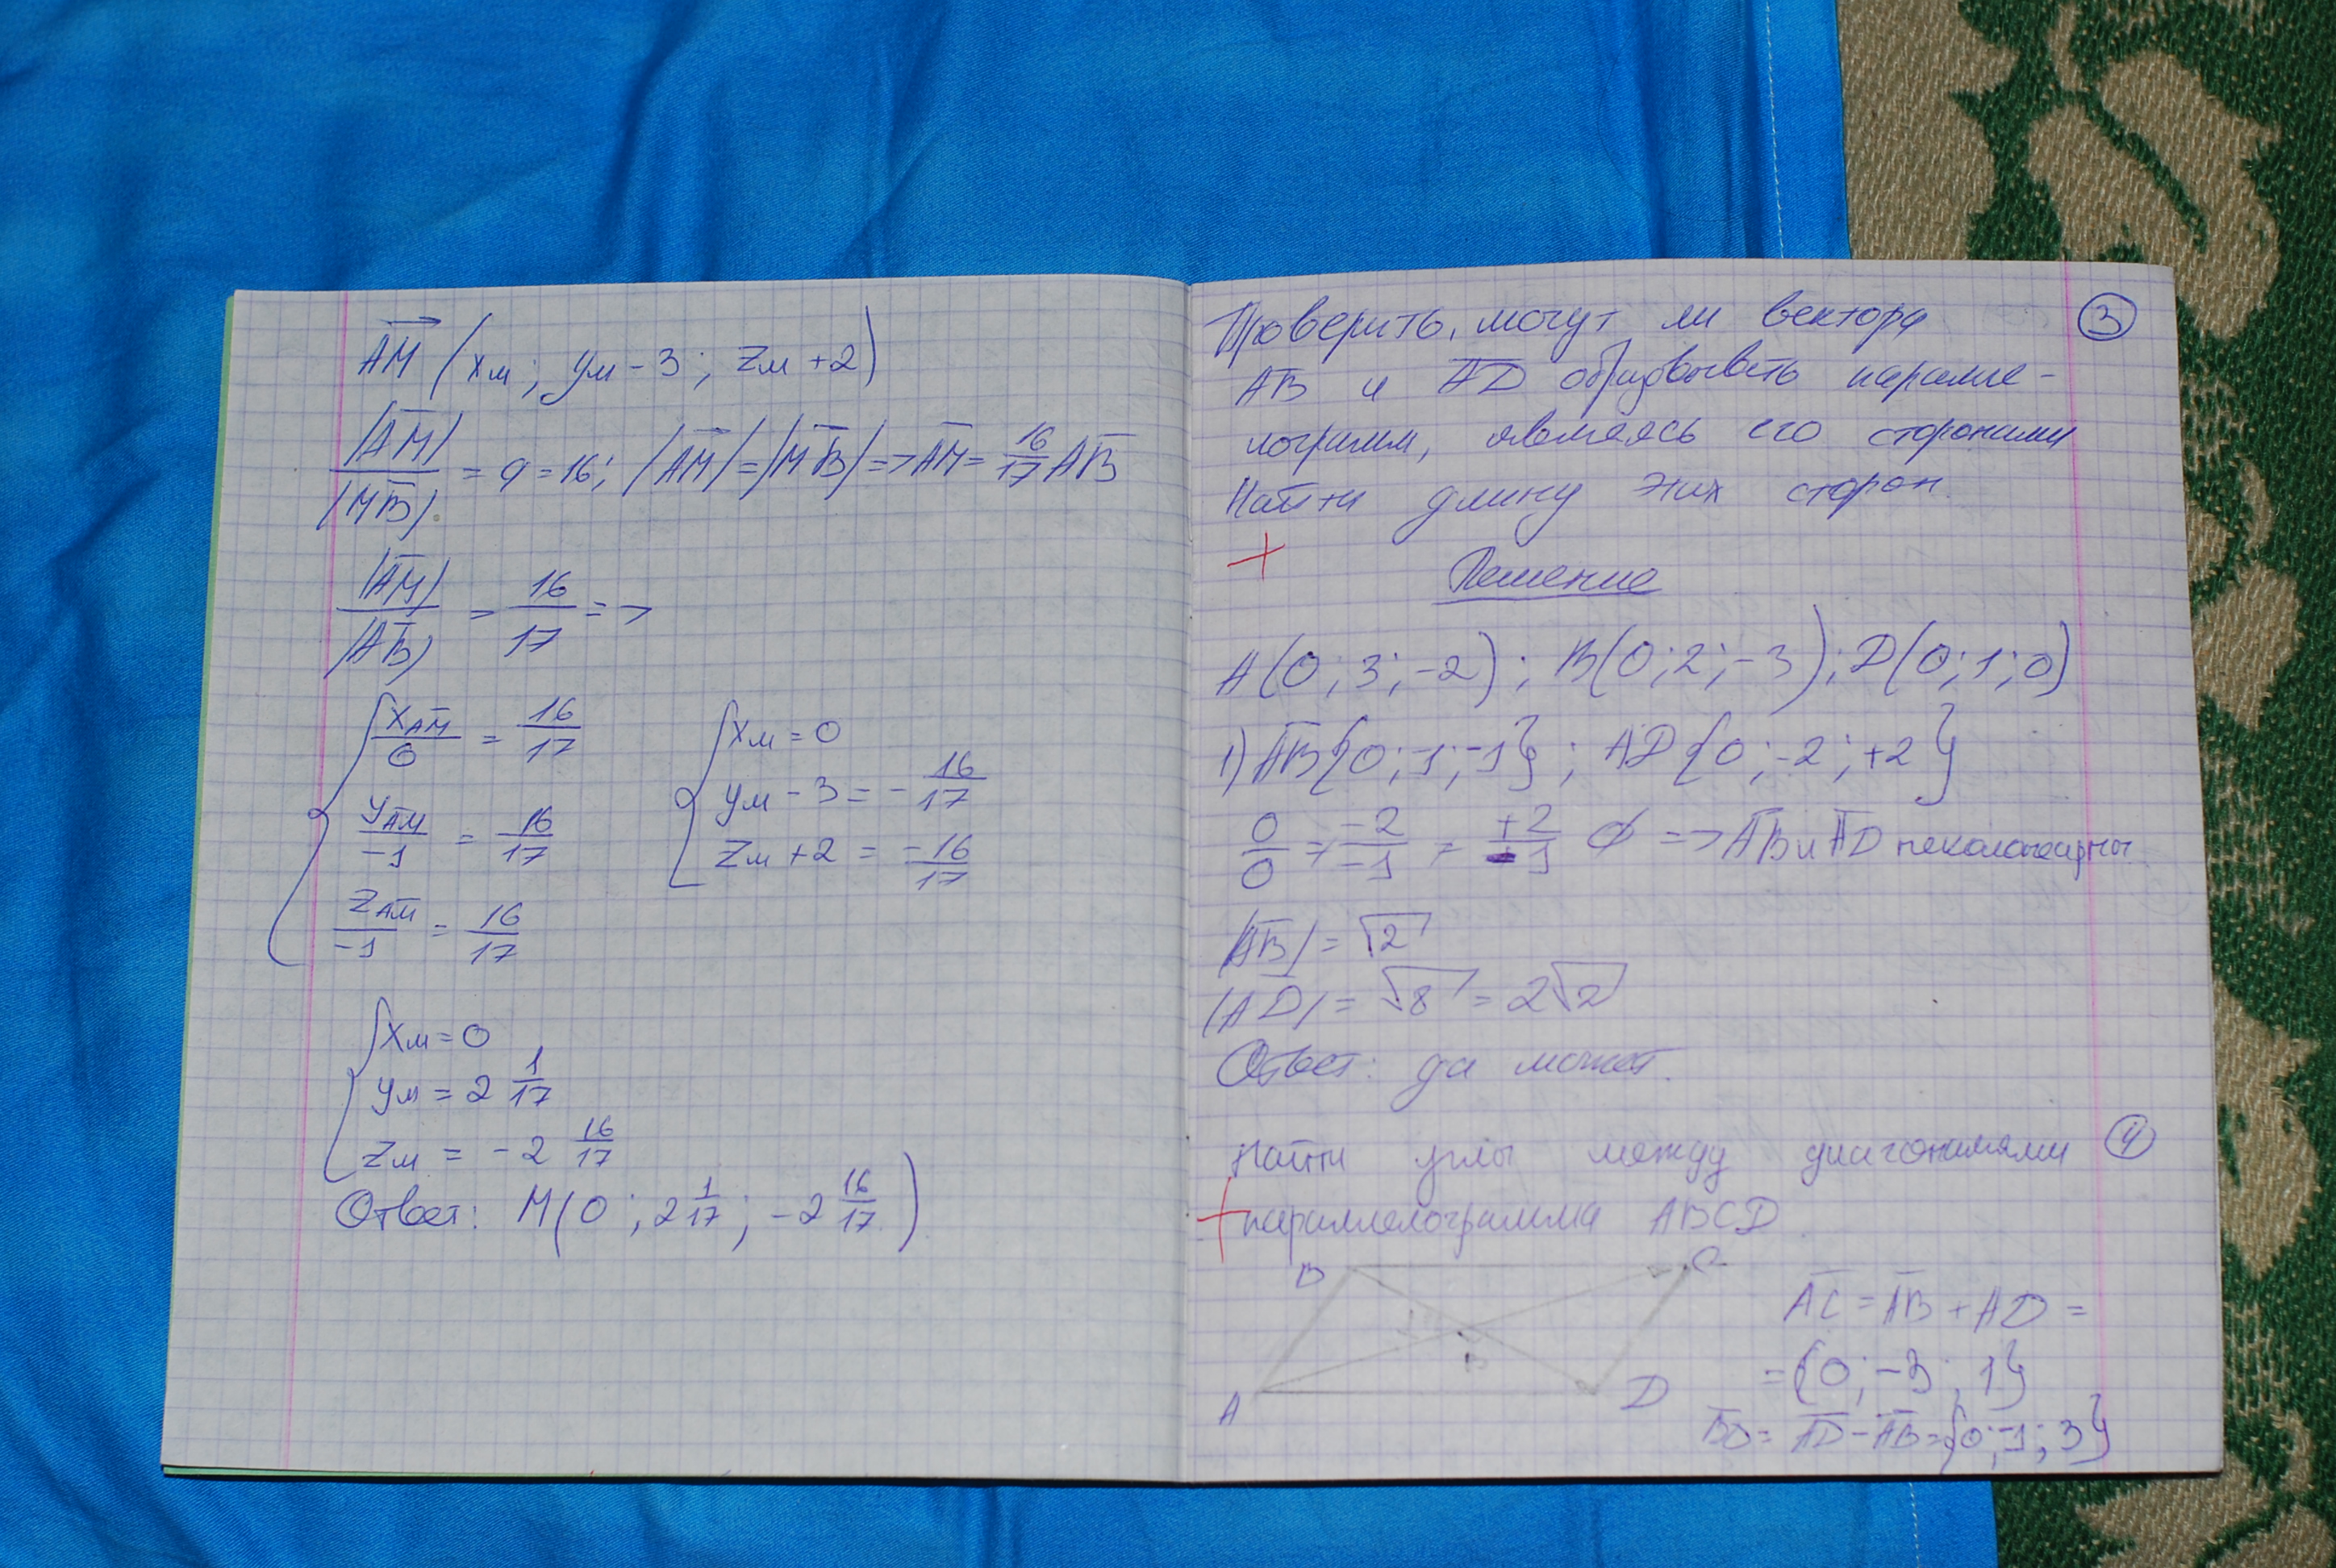 AM (xм; yм - 3; zм + 2)
|AM| / |MB| = q = 16; |AM| = |MB| => AM = 16/17 AB
|AM| / |AB| = 16/17 =>
{ x AM / 0 = 16/17
y AM / -1 = 16/17
z AM / -1 = 16/17
{ xм = 0
yм - 3 = - 16/17
zм + 2 = - 16/17
{ xм = 0
yм = 2 1/17
zм = - 2 16/17
Ответ: M(0; 2 1/17; -2 16/17)
3
Проверить, могут ли вектора
AB и AD образовывать паралле-
лограмм, являясь его сторонами
Найти длину этих сторон.
Решение
A(0; 3; -2); B(0; 2; -3); D(0; 1; 0)
1) AB{0; -1; -1}; AD{0; -2; +2}
0/0 = -2/-1 = +2/-1 ∅ => AB и AD неколлинеарны
|AB| = √2
|AD| = √8 = 2√2
Ответ: да может.
4
Найти углы между диагоналями
параллелограмма ABCD.
B C
A D
AC = AB + AD =
= {0; -3; 1}
BD = AD - AB = {0; -1; 3}